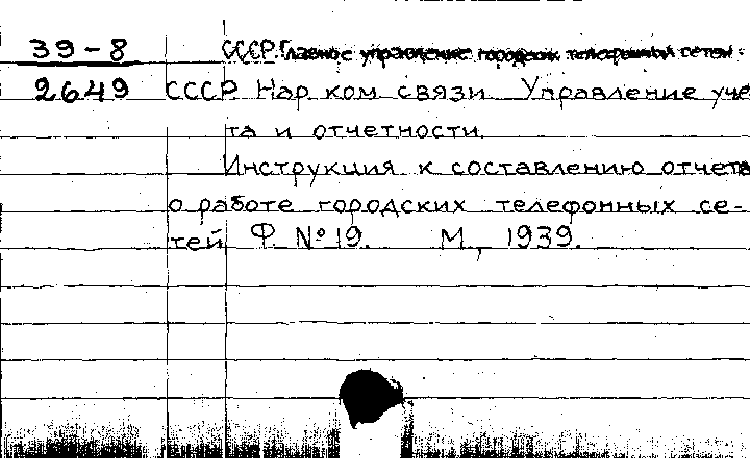 39-8 СССР. Главное управление городских телефонных сетей.
2649 СССР. Нар. ком. связи. Управление учё
та и отчетности.
Инструкция к составлению отчета
о работе городских телефонных се-
тей Ф. №19. М., 1939.